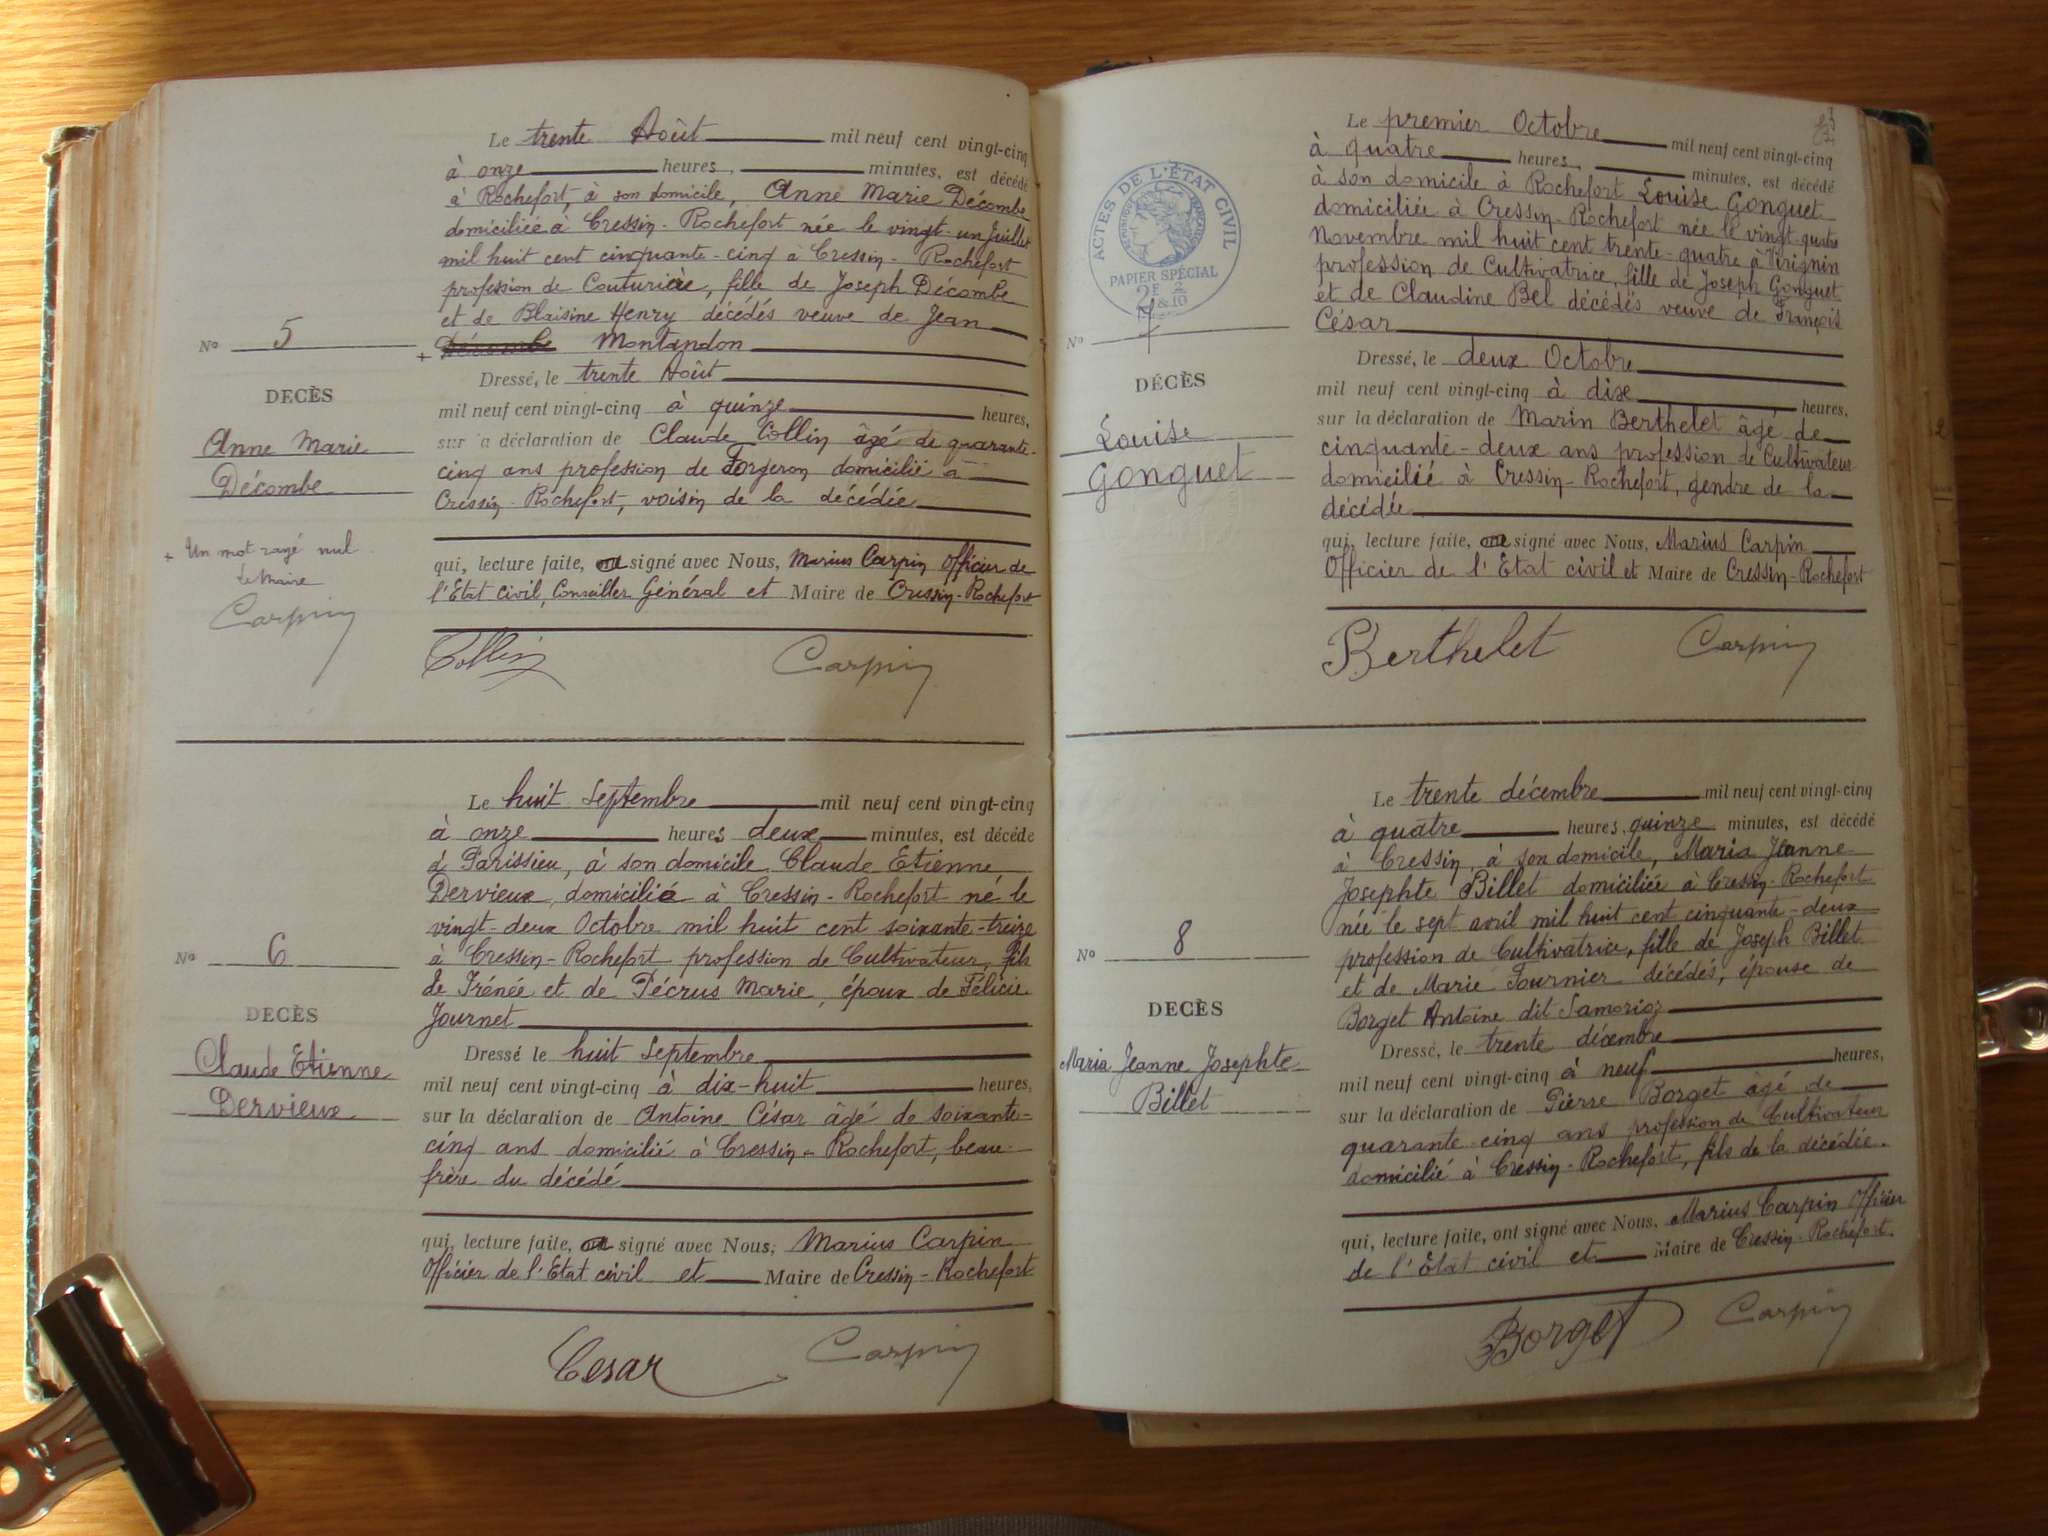 Le trente Août mil neuf cent vingt-cinq
à onze heures, minutes, est décédé
à Rochefort, à son domicile, Anne Marie Décombe
domiciliée à Cressin-Rochefort née le vingt-un Juillet
mil huit cent cinquante-cinq à Cressin-Rochefort
profession de Couturière, fille de Joseph Décombe
et de Blaisine Henry décédés veuve de Jean
+ Décombe Montandon
No 5
DECÈS
Anne Marie
Décombe
+ Un mot rayé nul
Le Maire
Carpin
Dressé, le trente Août
mil neuf cent vingt-cinq à quinze heures,
sur la déclaration de Claude Collin âgé de quarante-
cinq ans profession de Forgeron domicilié à
Cressin-Rochefort, voisin de la décédée
qui, lecture faite, a signé avec Nous, Marius Carpin Officier de
l'Etat civil, Conseiller Général et Maire de Cressin-Rochefort
Collin Carpin
Le huit Septembre mil neuf cent vingt-cinq
à onze heures deux minutes, est décédé
à Parissieu, à son domicile Claude Etienne
Dervieux, domicilié à Cressin-Rochefort né le
vingt-deux Octobre mil huit cent soixante-treize
à Cressin-Rochefort profession de Cultivateur, fils
de Irénée et de Pécrus Marie, époux de Félicie
Journet
No 6
DECÈS
Claude Etienne
Dervieux
Dressé le huit Septembre
mil neuf cent vingt-cinq à dix-huit heures,
sur la déclaration de Antoine César âgé de soixante-
cinq ans domicilié à Cressin-Rochefort, beau-
frère du décédé
qui, lecture faite, a signé avec Nous, Marius Carpin
Officier de l'Etat civil et Maire de Cressin-Rochefort
Cesar Carpin
Le premier Octobre mil neuf cent vingt-cinq
à quatre heures, minutes, est décédé
à son domicile à Rochefort Louise Gonguet
domiciliée à Cressin-Rochefort née le vingt-quatre
Novembre mil huit cent trente-quatre à Virignin
profession de Cultivatrice, fille de Joseph Gonguet
et de Claudine Bel décédés veuve de François
César
ACTES DE L'ÉTAT CIVIL
PAPIER SPÉCIAL
2F & 2/10
No 7
DÉCÈS
Louise
Gonguet
Dressé, le deux Octobre
mil neuf cent vingt-cinq à dix heures,
sur la déclaration de Marin Berthelet âgé de
cinquante-deux ans profession de Cultivateur
domicilié à Cressin-Rochefort, gendre de la
décédée
qui, lecture faite, a signé avec Nous, Marius Carpin
Officier de l'Etat civil et Maire de Cressin-Rochefort
Berthelet Carpin
Le trente décembre mil neuf cent vingt-cinq
à quatre heures, quinze minutes, est décédé
à Cressin, à son domicile, Maria Jeanne
Josephte Billet domiciliée à Cressin-Rochefort
née le sept avril mil huit cent cinquante-deux
profession de Cultivatrice, fille de Joseph Billet
et de Marie Fournier décédés, épouse de
Borget Antoine dit Samorioz
No 8
DECÈS
Maria Jeanne Josephte
Billet
Dressé, le trente décembre
mil neuf cent vingt-cinq à neuf heures,
sur la déclaration de Pierre Borget âgé de
quarante-cinq ans profession de Cultivateur
domicilié à Cressin-Rochefort, fils de la décédée.
qui, lecture faite, ont signé avec Nous, Marius Carpin Officier
de l'Etat civil et Maire de Cressin-Rochefort.
Borget Carpin